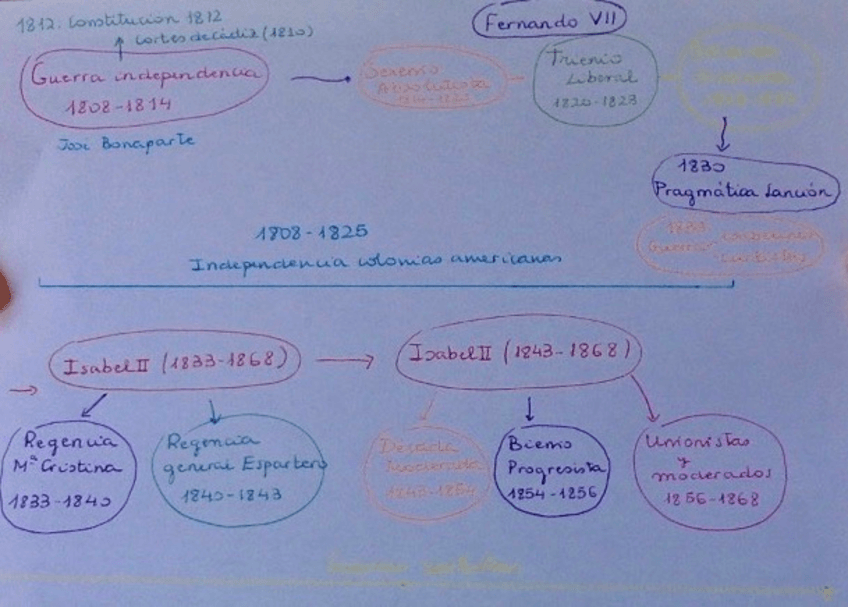 1812: Constitución 1812
Cortes de Cádiz (1810)
Fernando VII
Guerra independencia
1808-1814
José Bonaparte
Sexenio
Absolutista
Trienio
Liberal
1820-1823
1830
Pragmática Sanción
1833
Guerra
1808-1825
Independencia colonias americanas
Isabel II (1833-1868)
Isabel II (1843-1868)
Regencia
Mª Cristina
1833-1840
Regencia
general Espartero
1840-1843
Década
Moderada
1843-1854
Bienio
Progresista
1854-1856
Unionistas
y
moderados
1856-1868